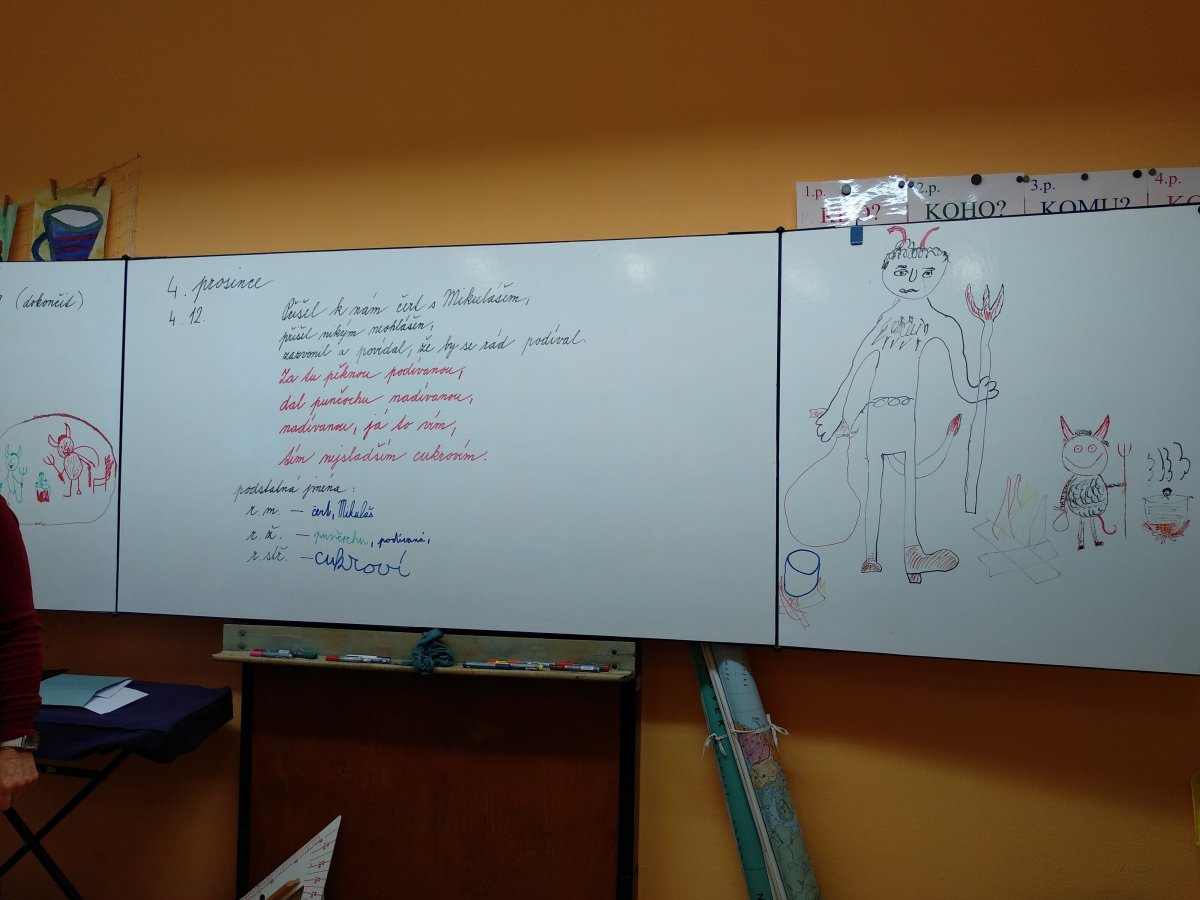 1.p.
2.p.
3.p.
4.p.
KDO?
KOHO?
KOMU?
(dokončit)
4. prosince
4. 12.
Přišel k nám čert s Mikulášem,
přišel nikým neohlášen,
zazvonil a povídal, že by se rád podíval.
Za tu pěknou podívanou,
dal punčochu nadívanou,
nadívanou, já to vím,
tím nejsladším cukrovím.
podstatná jména :
r. m. – čert, Mikuláš
r. ž. – punčochu, podívaná,
r. stř. – cukroví